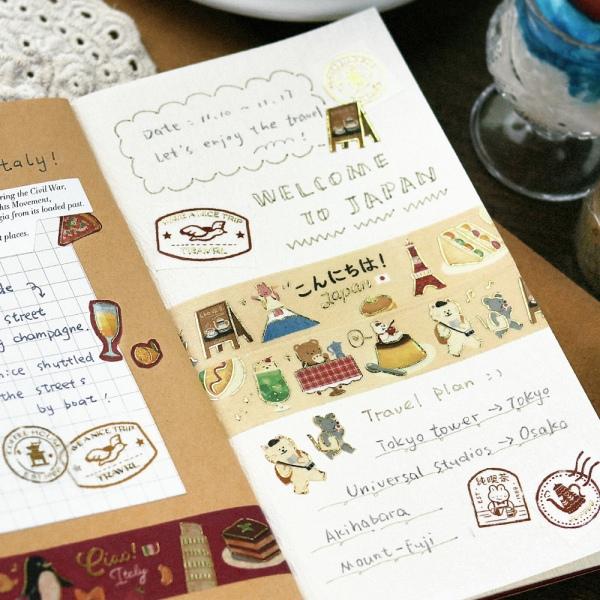 taly!
ring the Civil War,
hts Movement,
gia from its loaded past.
t places.
de
street
g champagne.
nice shuttled
the streets
by boat!
COFFEE HOUSE
WE A NICE TRIP
TRAVRL
Ciao!
Italy
Date : 11.10 ~ 11.17
Let's enjoy the travel
!
WELCOME
TO JAPAN
A NICE TRIP
TRAVRL
こんにちは!
Japan
Travel plan :)
Tokyo tower → Tokyo
Universal Studios → Osaka
Akihabara
Mount-Fuji
純喫茶
EST.